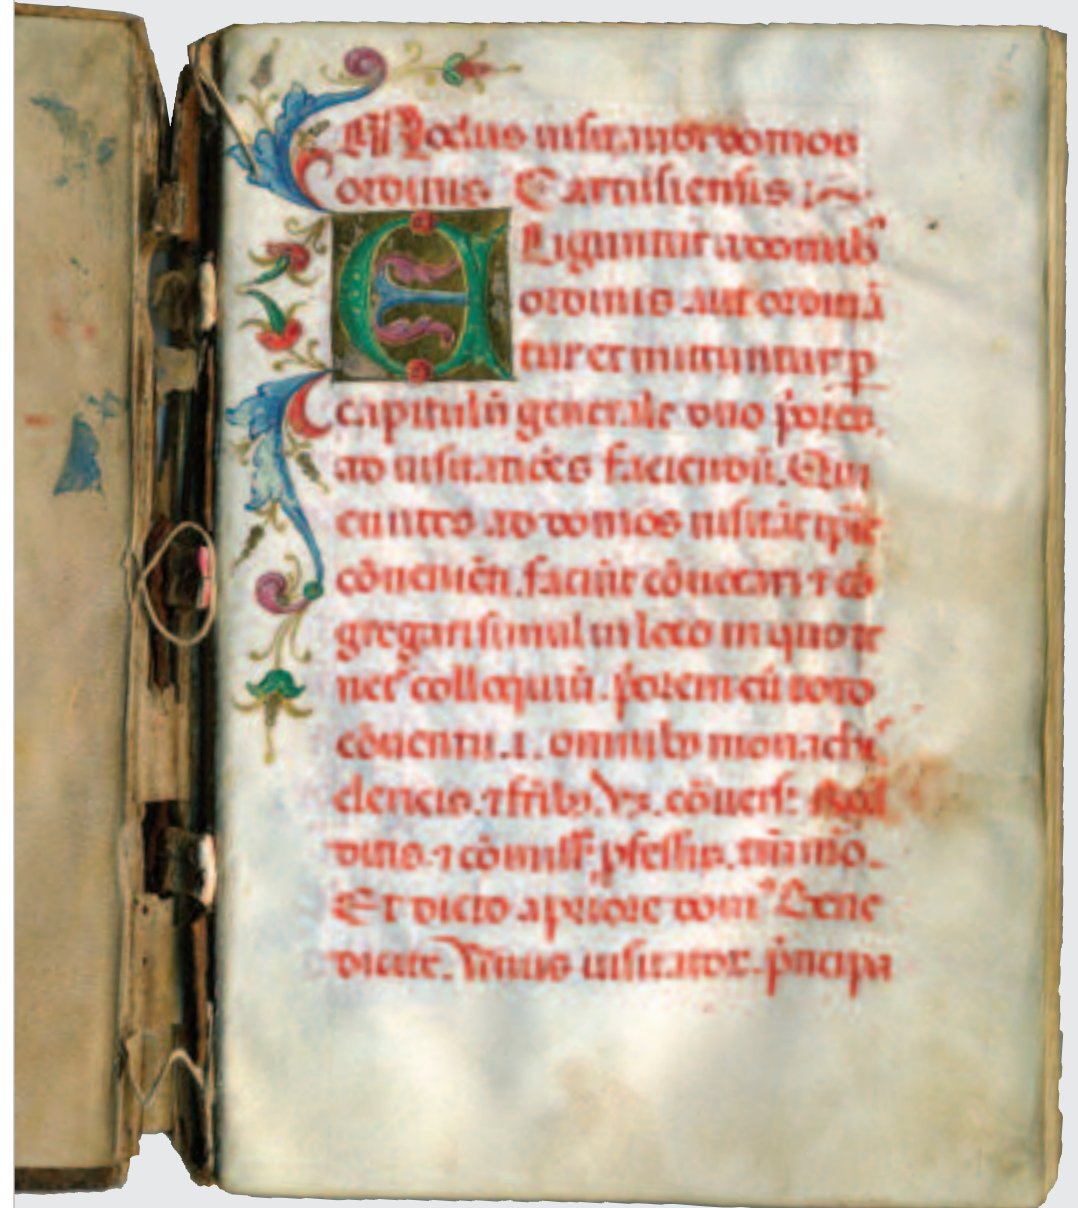 Modus visitandi domos
ordinis Cartusiensis :~
ELiguntur a domib9
ordinis aut ordinā
tur et mittuntur p
capitulū generale duo pͥores
ad visitatiōes faciendū. Qui
eūtes ad domos visitāt
cōuenien. faciūt cōuocari ⁊ cō
gregari simul in loco in quo te
net colloquiū. pͥorem cū toto
cōuentu .i. omnib9 monachis
clericis ⁊ frīb9. cōuers:
ditis ⁊ pfessis.
Et dicto a priore dom9 Bene
dicite. Vnus visitator pͥncipa